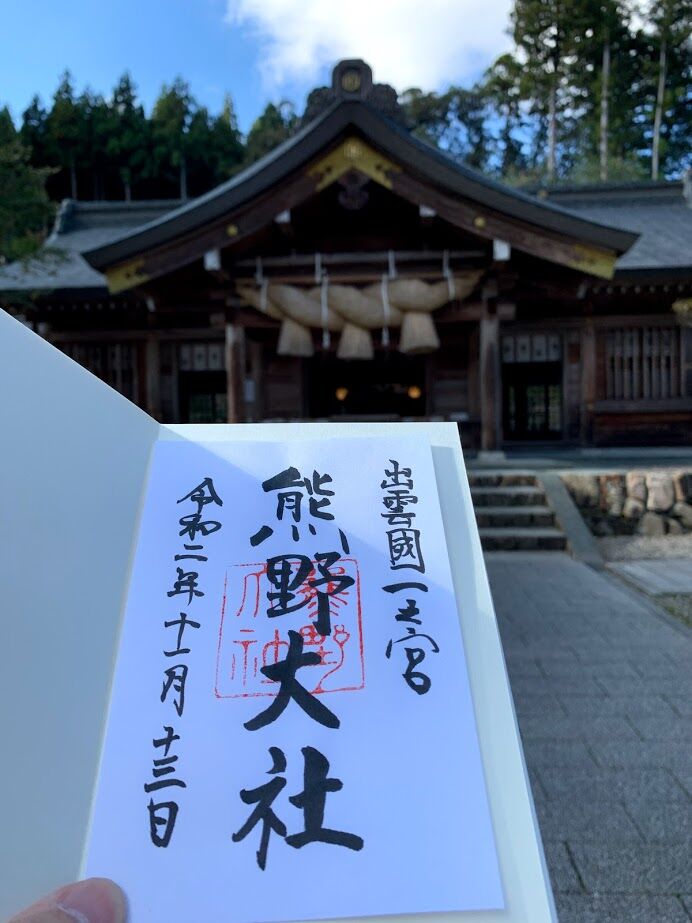 出雲國一之宮
熊野大社
令和二年十一月十三日